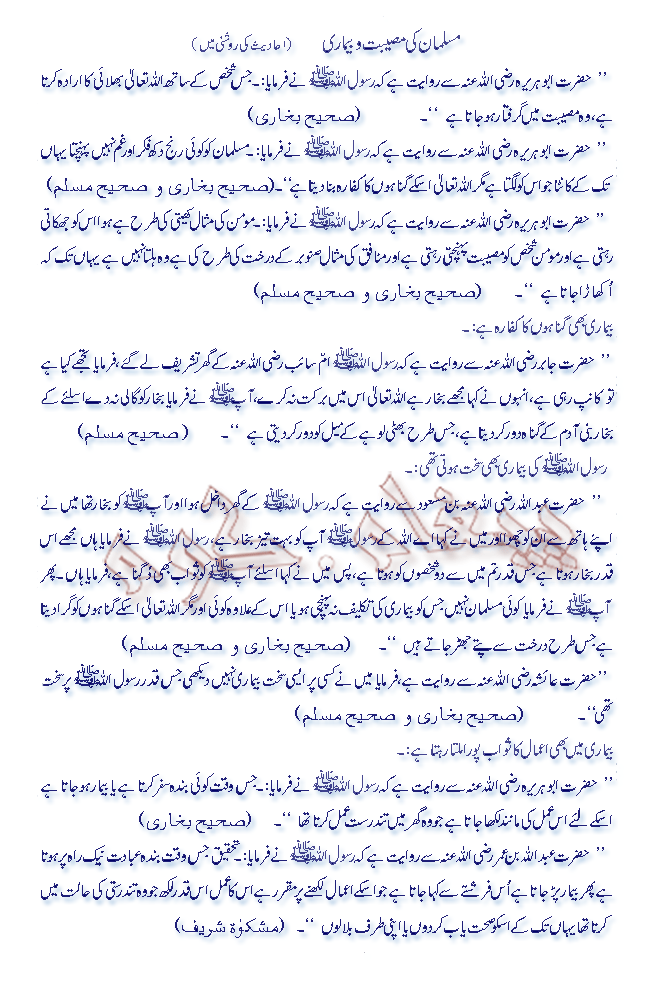 مسلمان کی مصیبت و بیماری (احادیث کی روشنی میں)
’’ حضرت ابوہریرہ رضی اللہ عنہ سے روایت ہے کہ رسول اللہ ﷺ نے فرمایا:۔جس شخص کے ساتھ اللہ تعالیٰ بھلائی کا ارادہ کرتا
ہے،وہ مصیبت میں گرفتار ہو جاتا ہے ‘‘۔ (صحیح بخاری)
’’ حضرت ابوہریرہ رضی اللہ عنہ سے روایت ہے کہ رسول اللہ ﷺ نے فرمایا:۔مسلمان کو کوئی رنج دکھ فکر اور غم نہیں پہنچتا یہاں
تک کے کانٹا جو اس کو لگتا ہے مگر اللہ تعالیٰ اسکے گناہوں کا کفارہ بنا دیتا ہے‘‘۔(صحیح بخاری و صحیح مسلم)
’’ حضرت ابوہریرہ رضی اللہ عنہ سے روایت ہے کہ رسول اللہ ﷺ نے فرمایا:۔مومن کی مثال کھیتی کی طرح ہے ہوا اس کو جھکاتی
رہتی ہے اور مومن شخص کو مصیبت پہنچتی رہتی ہے اور منافق کی مثال صنوبر کے درخت کی طرح کی ہے وہ ہلتا نہیں ہے یہاں تک کہ
اُکھاڑا جاتا ہے ‘‘۔ (صحیح بخاری و صحیح مسلم)
بیماری بھی گناہوں کا کفارہ ہے:۔
’’ حضرت جابر رضی اللہ عنہ سے روایت ہے کہ رسول اللہ ﷺ امّ سائب رضی اللہ عنہ کے گھر تشریف لے گئے،فرمایا تجھے کیا ہے
تو کانپ رہی ہے،انہوں نے کہا مجھے بخار ہے اللہ تعالیٰ اس میں برکت نہ کرے،آپ ﷺ نے فرمایا بخار کو گالی نہ دے اسلئے کے
بخار بنی آدم کے گناہ دور کر دیتا ہے،جس طرح بھٹی لوہے کے میل کو دور کر دیتی ہے ‘‘۔ (صحیح مسلم)
رسول اللہ ﷺ کی بیماری بھی سخت ہوتی تھی:۔
’’ حضرت عبداللہ رضی اللہ عنہ بن مسعود سے روایت ہے کہ رسول اللہ ﷺ کے گھر داخل ہوا اور آپ ﷺ کو بخار تھا میں نے
اپنے ہاتھ سے ان کو چھوا اور میں نے کہا اے اللہ کے رسول ﷺ آپ کو بہت تیز بخار ہے،رسول اللہ ﷺ نے فرمایا ہاں مجھے اس
قدر بخار ہوتا ہے جس قدر تم میں سے دو شخصوں کو ہوتا ہے،پس میں نے کہا اسلئے آپ ﷺ کو ثواب بھی دُگنا ہے،فرمایا ہاں۔پھر
آپ ﷺ نے فرمایا کوئی مسلمان نہیں جس کو بیماری کی تکلیف نہ پہنچی ہو یا اس کے علاوہ کوئی اور مگر اللہ تعالیٰ اسکے گناہوں کو گرا دیتا
ہے جس طرح درخت سے پتے جھڑ جاتے ہیں ‘‘۔ (صحیح بخاری و صحیح مسلم)
’’حضرت عائشہ رضی اللہ عنہ سے روایت ہے،فرمایا میں نے کسی پر ایسی سخت بیماری نہیں دیکھی جس قدر رسول اللہ ﷺ پر سخت
تھی‘‘۔ (صحیح بخاری و صحیح مسلم)
بیماری میں بھی اعمال کا ثواب پورا ملتا رہتا ہے:۔
’’ حضرت ابوہریرہ رضی اللہ عنہ سے روایت ہے کہ رسول اللہ ﷺ نے فرمایا:۔جس وقت کوئی بندہ سفر کرتا ہے یا بیمار ہو جاتا ہے
اسکے لئے اس عمل کی مانند لکھا جاتا ہے جو وہ گھر میں تندرست عمل کرتا تھا ‘‘۔ (صحیح بخاری)
’’ حضرت عبداللہ بن عمر رضی اللہ عنہ سے روایت ہے کہ رسول اللہ ﷺ نے فرمایا:۔تحقیق جس وقت بندہ عبادت نیک راہ پر ہوتا
ہے پھر بیمار پڑ جاتا ہے اُس فرشتے سے کہا جاتا ہے جو اسکے اعمال لکھنے پر مقرر ہے اس کا عمل اس قدر لکھ جو وہ تندرستی کی حالت میں
کرتا تھا یہاں تک کے اسکو صحت یاب کر دوں یا اپنی طرف بلا لوں ‘‘۔ (مشکوٰۃ شریف)